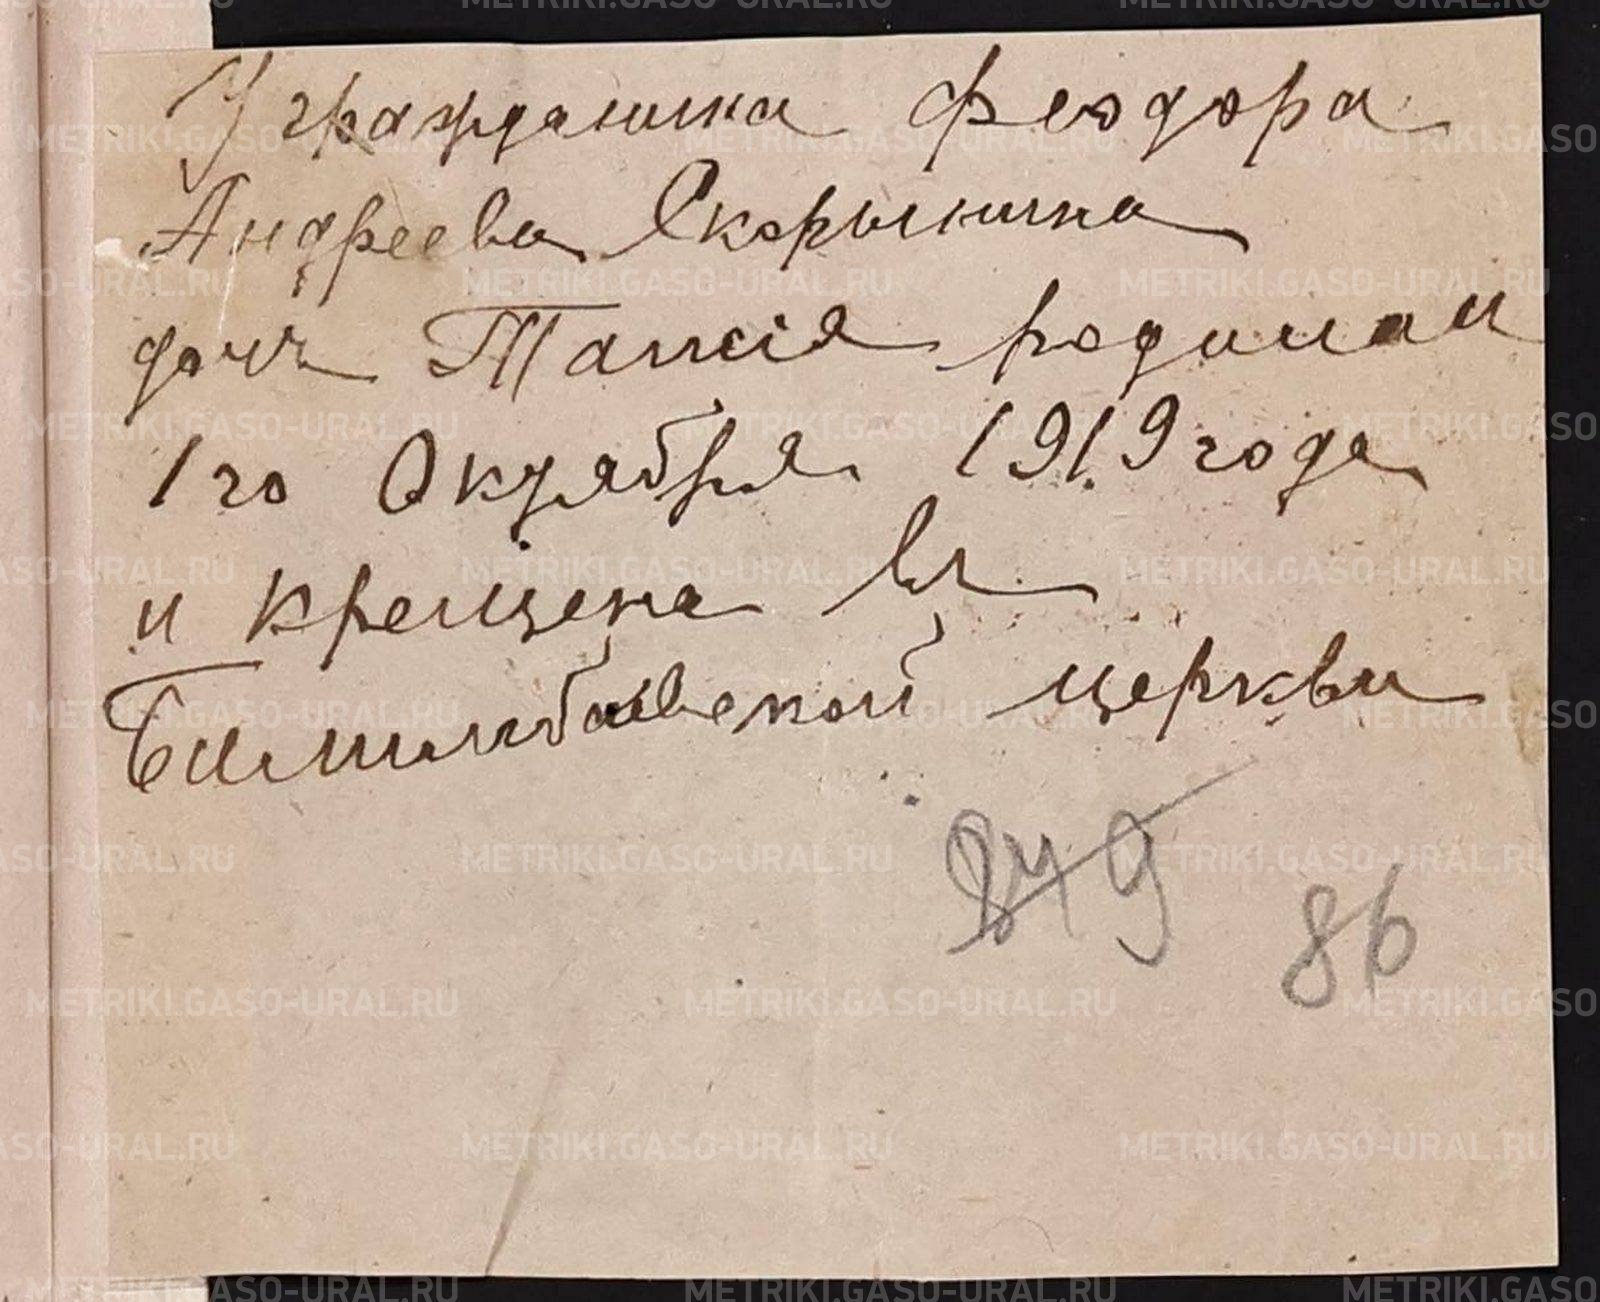 У гражданина Феодора
Андреева Скорынина
дочь Таисія родилась
1го Октября 1919 года
и крещена въ
Билимбаевской церкви
849
86
METRIKI.GASO-URAL.RU